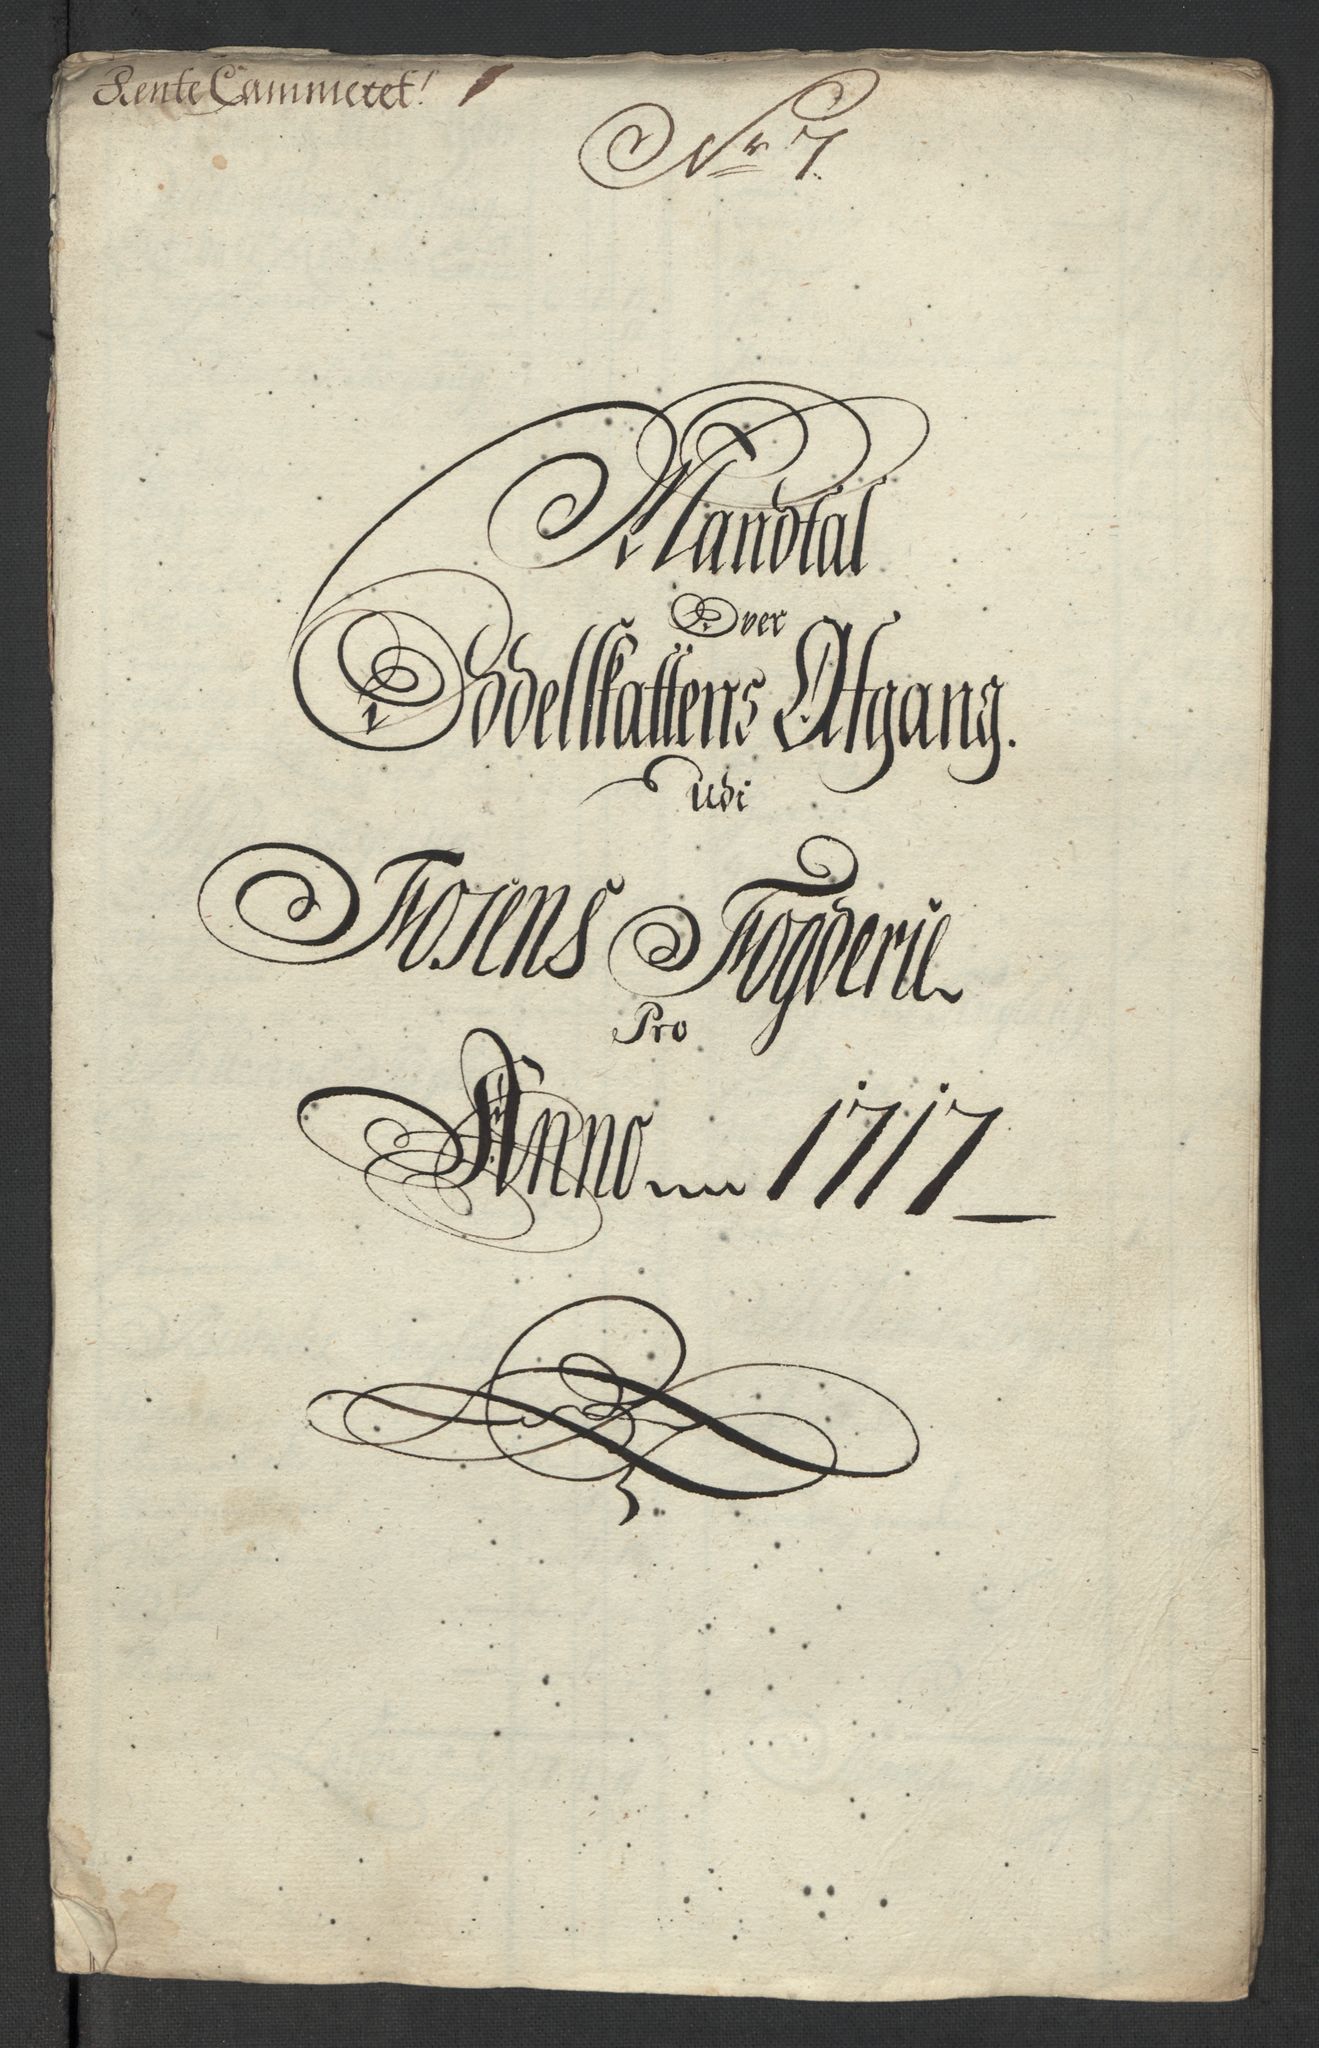 Rente Cammeret!
No 7.
Mandtal
Over
Oddelskattens Afgang.
Udi
Fosens Fogderie
Pro
Anno 1717